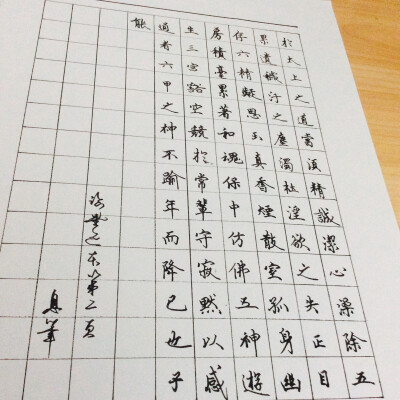 於太上之道當須精誠潔心澡除五
累遺穢汙之塵濁杜淫欲之失正目
存六精凝思玉真香煙散室孤身幽
房積毫累著和魂保中仿佛五神遊
生三宮豁空競於常輩守寂默以感
通者六甲之神不踰年而降已也子
能
第二頁